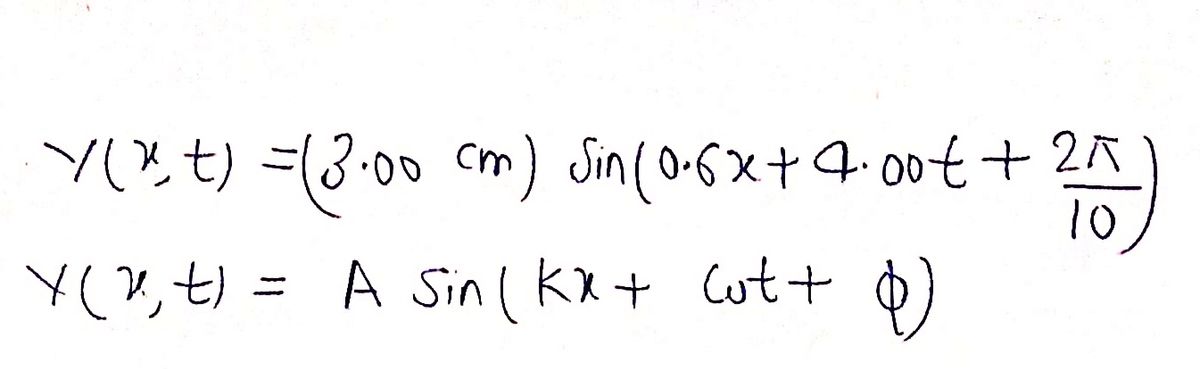 Y(x,t) =(3.00 cm) Sin(0.6x+4.00t + 2π/10)
Y(x,t) = A Sin(Kx+ ωt+ ϕ)